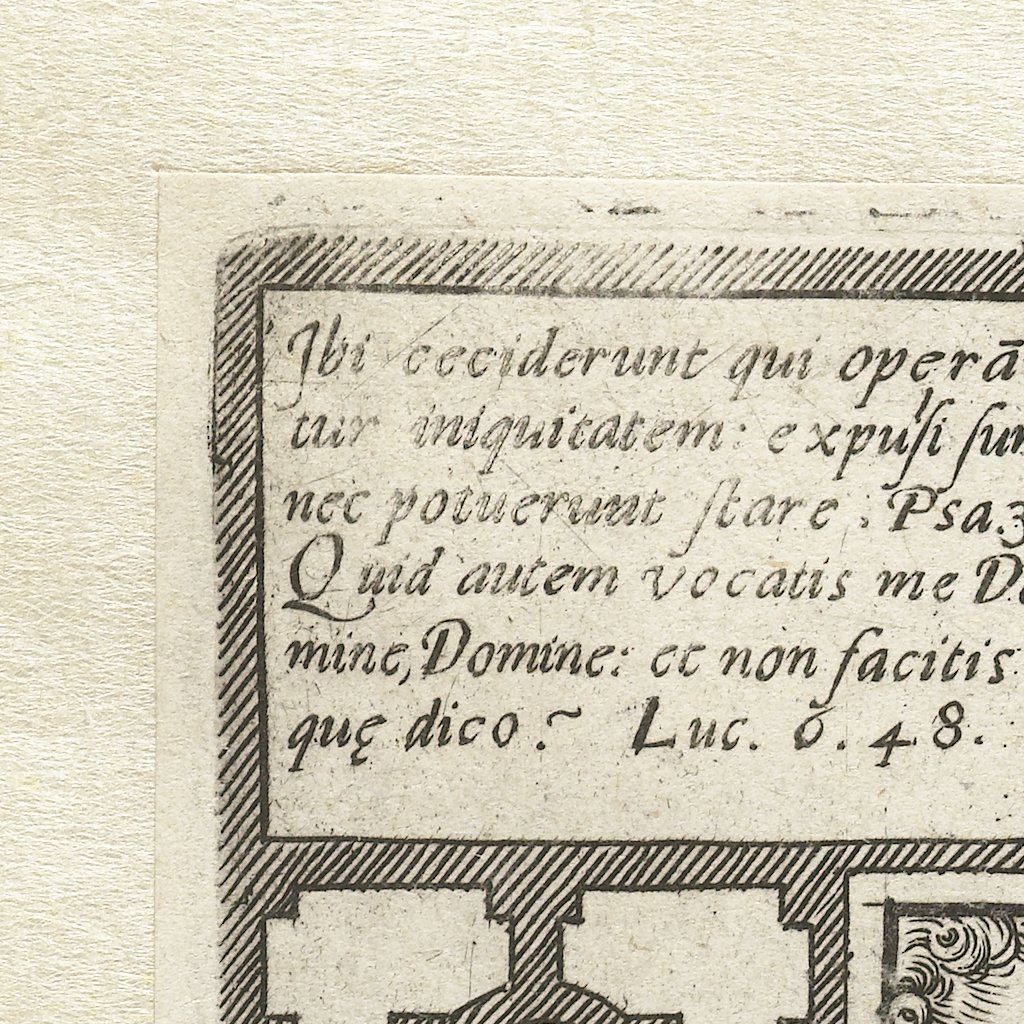 Ibi ceciderunt qui operā
tur iniquitatem: expulsi sun
nec potuerunt stare. Psa.3
Quid autem vocatis me Do
mine, Domine: et non facitis
quę dico? Luc. 6. 48.